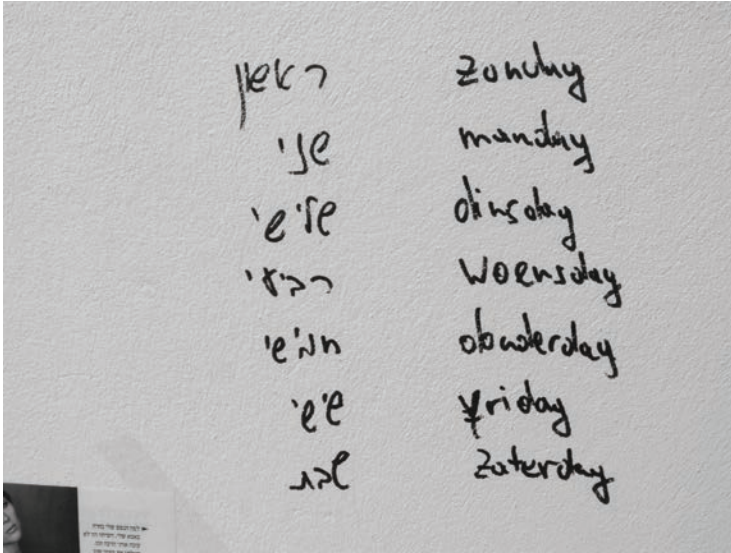 ראשון zonday
שני manday
שלישי dinsday
רביעי woensday
חמישי donderday
שישי
שבת zaterday